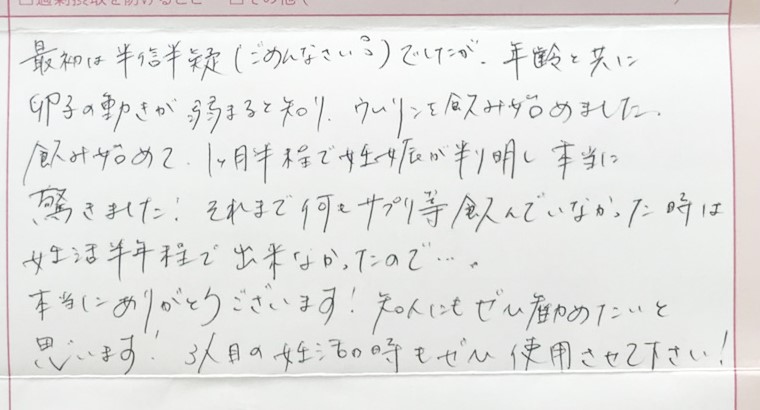 □過剰摂取を防げるとと □その他(
最初は半信半疑(ごめんなさい💦)でしたが、年齢と共に
卵子の動きが弱まると知り、ウムリンを飲み始めました。
飲み始めて、1ヶ月半程で妊娠が判明し本当に
驚きました!それまで何もサプリ等飲んでいなかった時は
妊活半年程で出来なかったので…。
本当にありがとうございます!知人にもぜひ勧めたいと
思います!3人目の妊活の時もぜひ使用させて下さい!